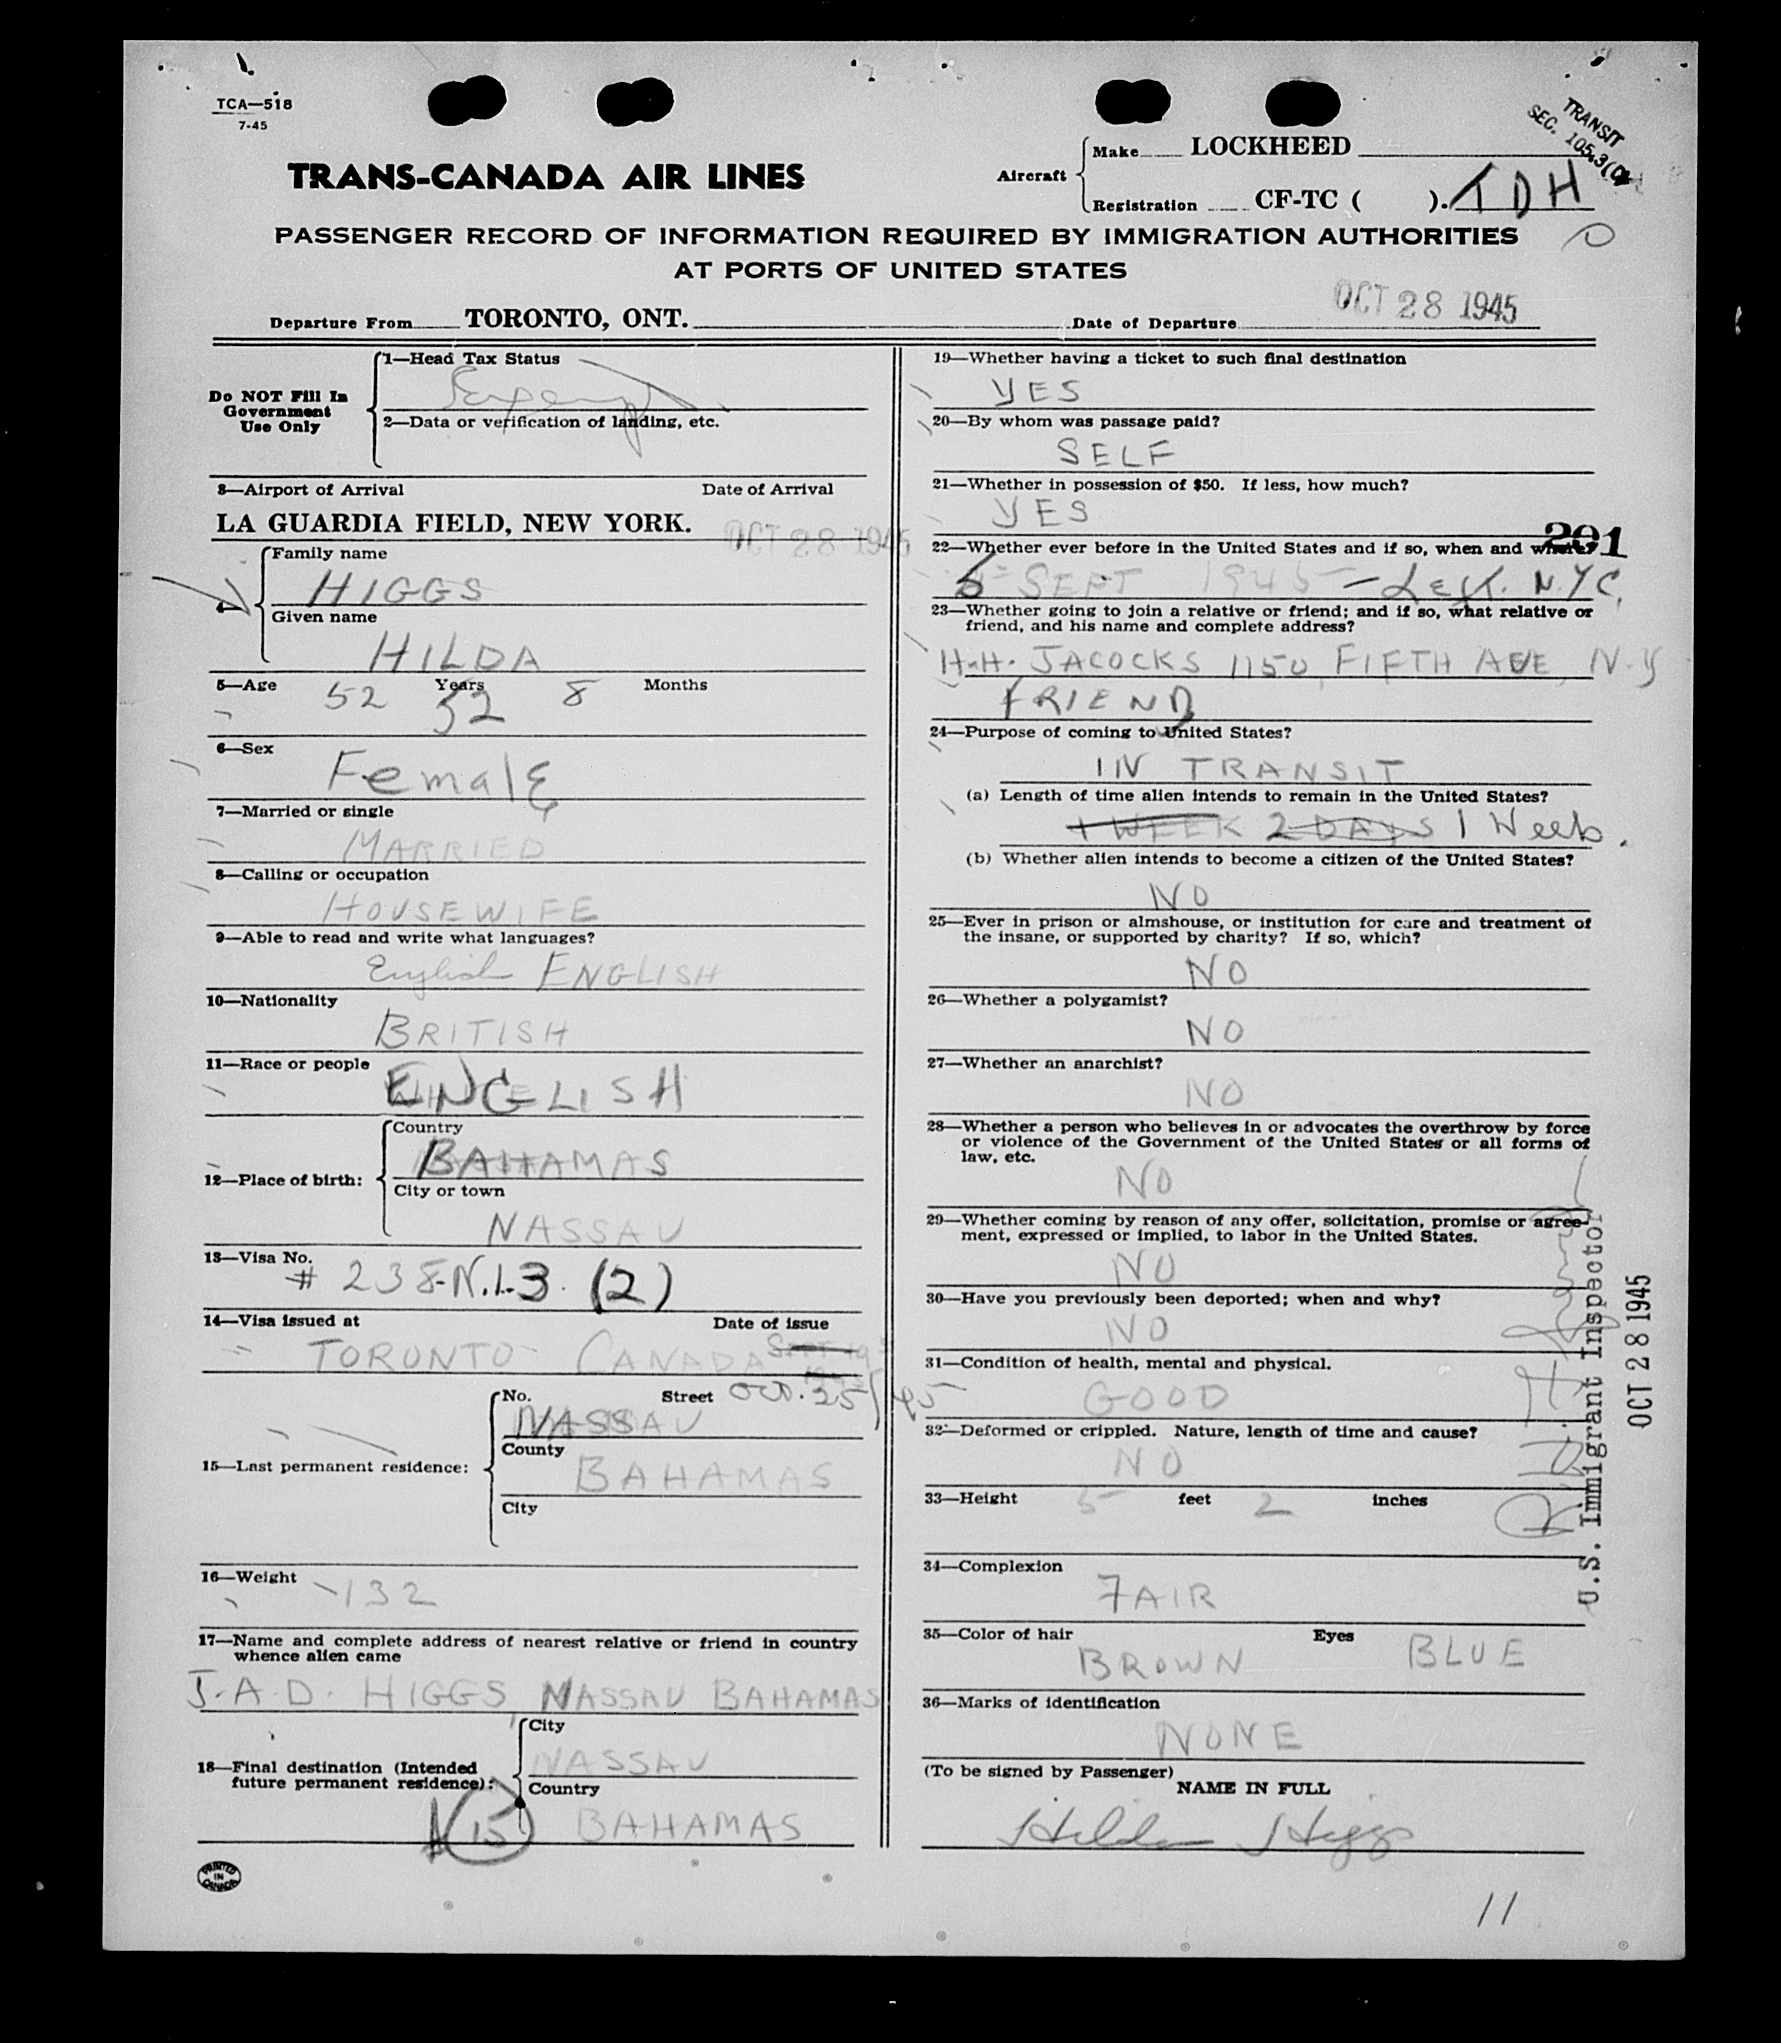 TCA—518
7-45
TRANS-CANADA AIR LINES
Aircraft
Make LOCKHEED
Registration CF-TC ( ). TDH
TRANSIT
SEC. 105.3
PASSENGER RECORD OF INFORMATION REQUIRED BY IMMIGRATION AUTHORITIES
AT PORTS OF UNITED STATES
Departure From TORONTO, ONT. Date of Departure OCT 28 1945
Do NOT Fill In
Government
Use Only
1—Head Tax Status
2—Data or verification of landing, etc.
3—Airport of Arrival Date of Arrival
LA GUARDIA FIELD, NEW YORK. OCT 28 1945
4—
Family name
HIGGS
Given name
HILDA
5—Age 52 Years 8 Months
52
6—Sex
Female
7—Married or single
MARRIED
8—Calling or occupation
HOUSEWIFE
9—Able to read and write what languages?
English ENGLISH
10—Nationality
BRITISH
11—Race or people
ENGLISH
12—Place of birth:
Country
BAHAMAS
City or town
NASSAU
13—Visa No.
# 238-N.I.3. (2)
14—Visa issued at Date of issue
TORONTO CANADA
Oct. 25/45
15—Last permanent residence:
No. Street
NASSAU
County
BAHAMAS
City
16—Weight
132
17—Name and complete address of nearest relative or friend in country
whence alien came
J.A.D. HIGGS NASSAU BAHAMAS
18—Final destination (Intended
future permanent residence):
City
NASSAU
Country
15 BAHAMAS
PRINTED
IN
CANADA
19—Whether having a ticket to such final destination
YES
20—By whom was passage paid?
SELF
21—Whether in possession of $50. If less, how much?
YES
201
22—Whether ever before in the United States and if so, when and where?
SEPT 1945 - N.Y.C.
23—Whether going to join a relative or friend; and if so, what relative or
friend, and his name and complete address?
H.H. JACOCKS 1150 FIFTH AVE, N.Y
FRIEND
24—Purpose of coming to United States?
IN TRANSIT
(a) Length of time alien intends to remain in the United States?
1 WEEK 2 DAYS 1 Week.
(b) Whether alien intends to become a citizen of the United States?
NO
25—Ever in prison or almshouse, or institution for care and treatment of
the insane, or supported by charity? If so, which?
NO
26—Whether a polygamist?
NO
27—Whether an anarchist?
NO
28—Whether a person who believes in or advocates the overthrow by force
or violence of the Government of the United States or all forms of
law, etc.
NO
29—Whether coming by reason of any offer, solicitation, promise or agree-
ment, expressed or implied, to labor in the United States.
NO
30—Have you previously been deported; when and why?
NO
31—Condition of health, mental and physical.
GOOD
32—Deformed or crippled. Nature, length of time and cause?
NO
33—Height 5 feet 2 inches
34—Complexion
FAIR
35—Color of hair Eyes
BROWN BLUE
36—Marks of identification
NONE
(To be signed by Passenger)
NAME IN FULL
Hilda Higgs
U.S. Immigrant Inspector
OCT 28 1945
11